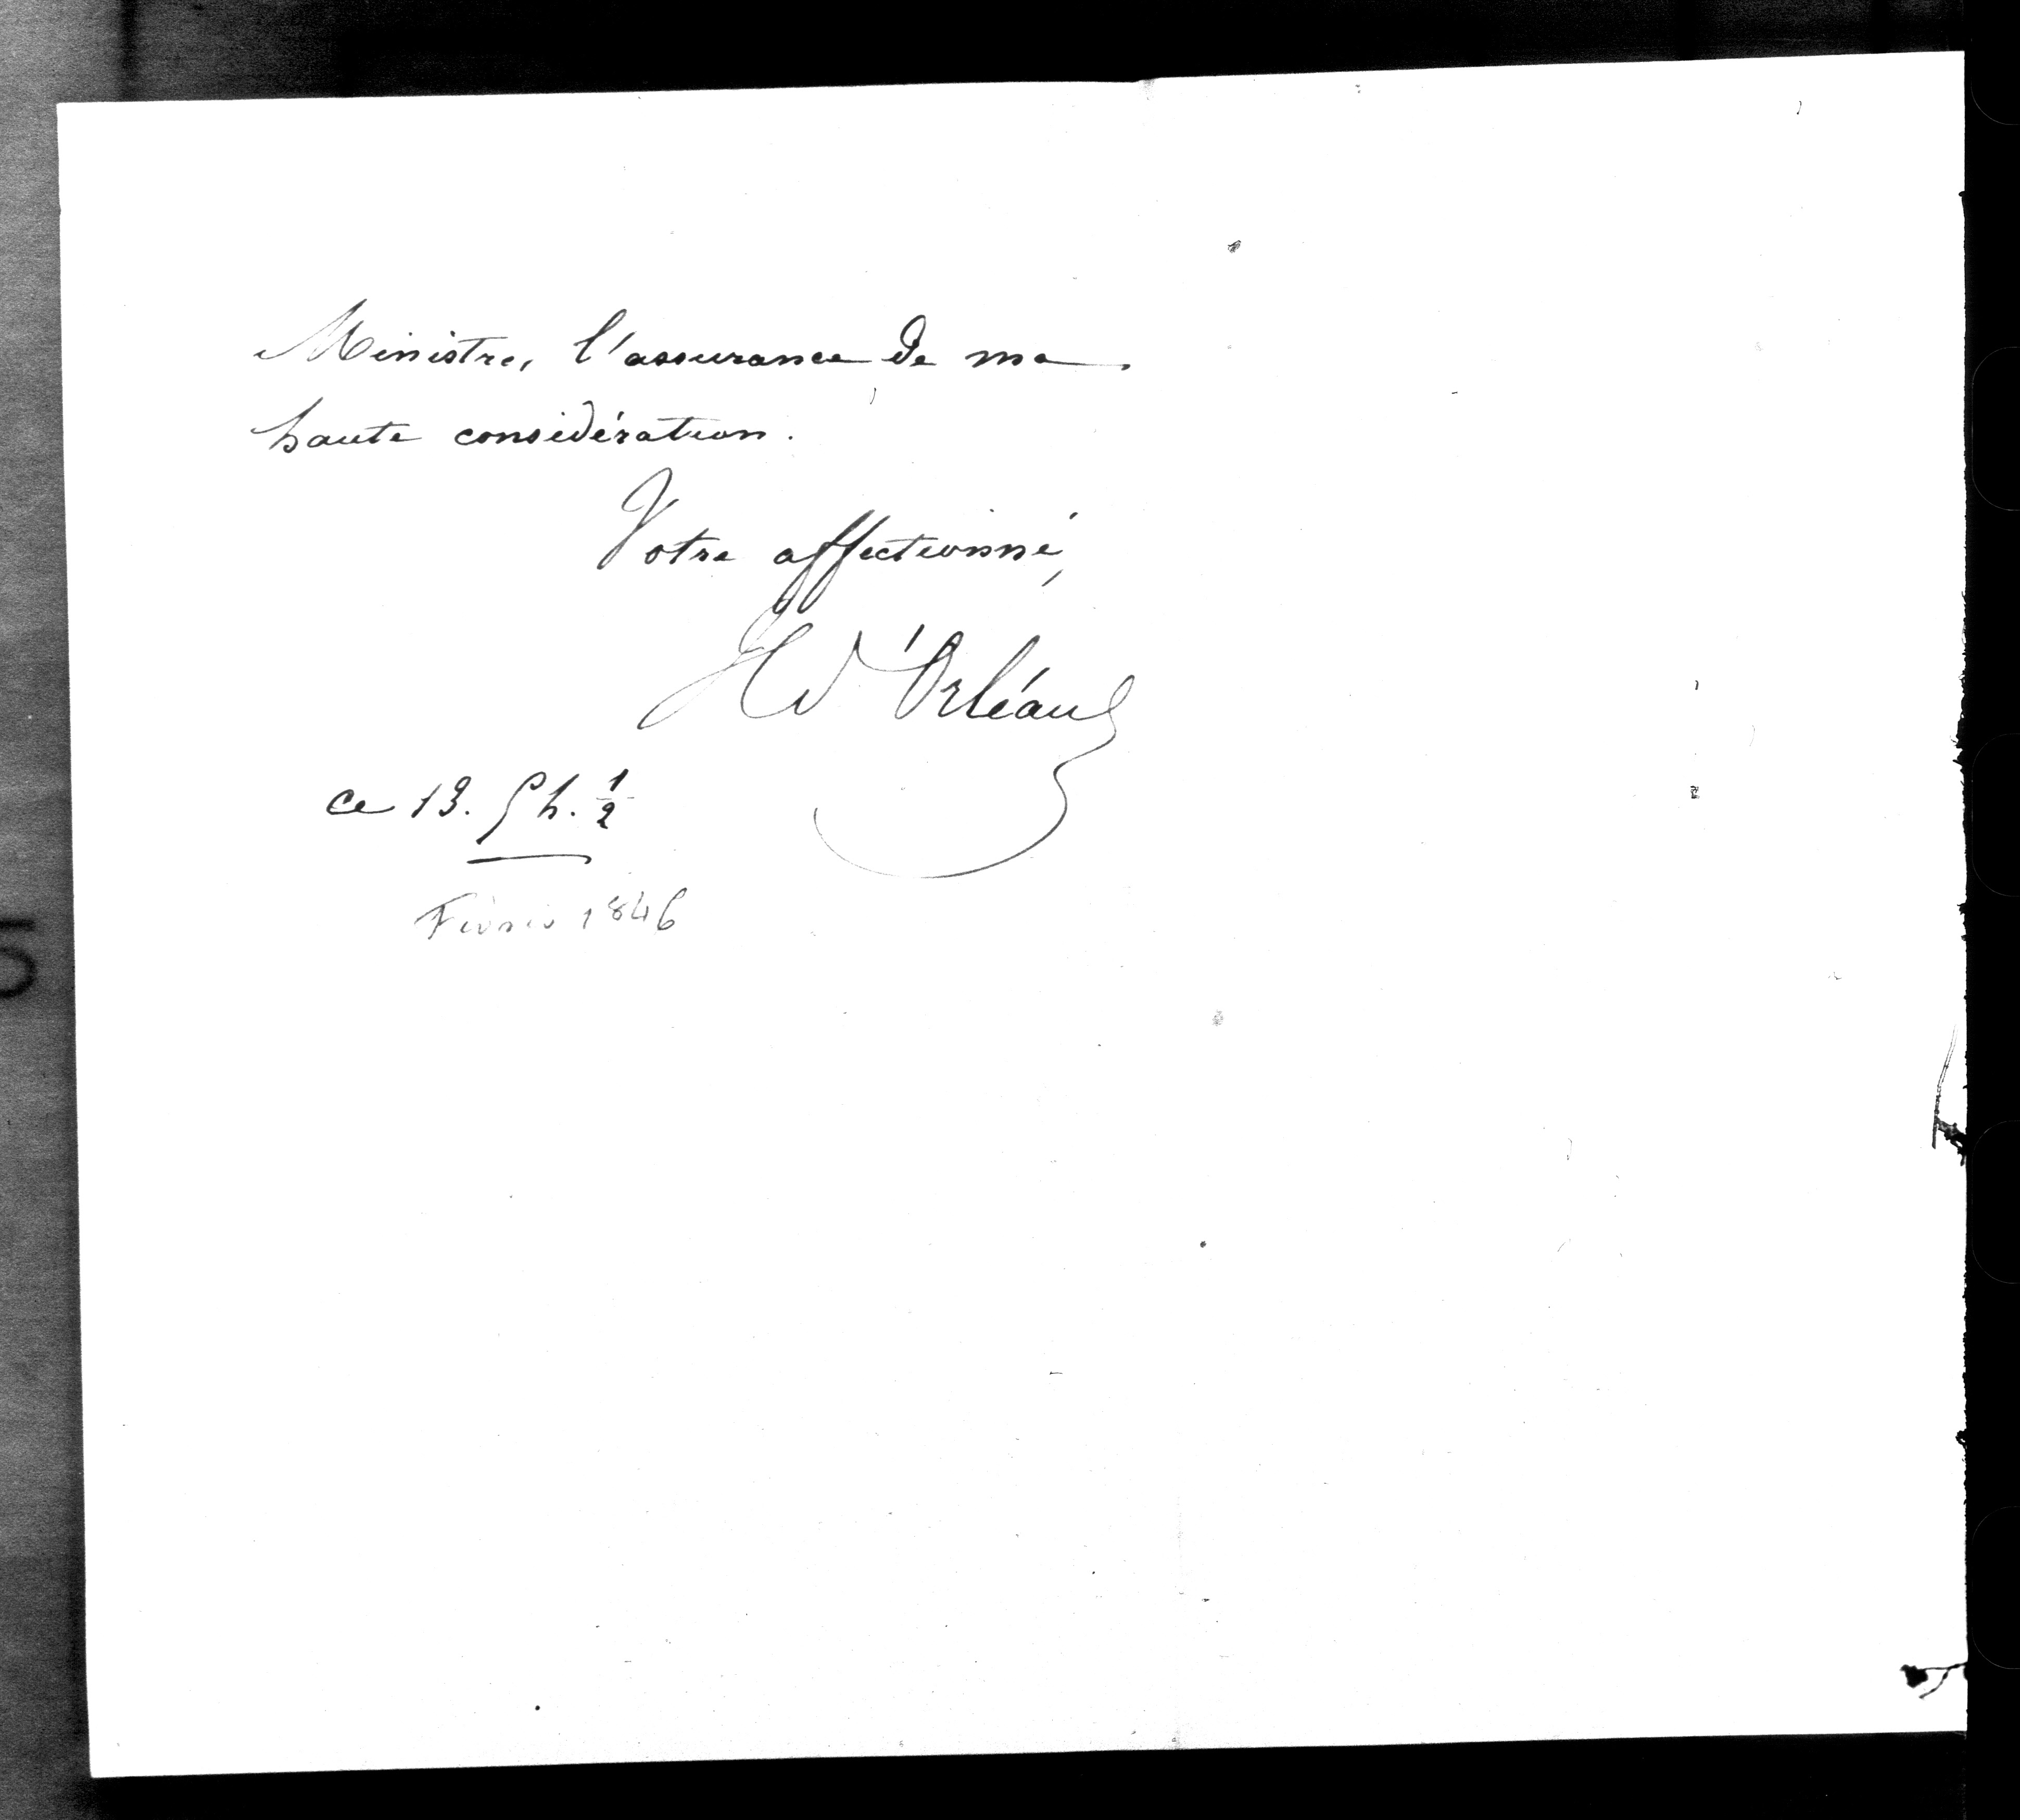 Ministre, l'assurance de ma
haute considération.
Votre affectionné,
H d'Orléans
ce 13. 9 h. 1/2
Février 1846
5